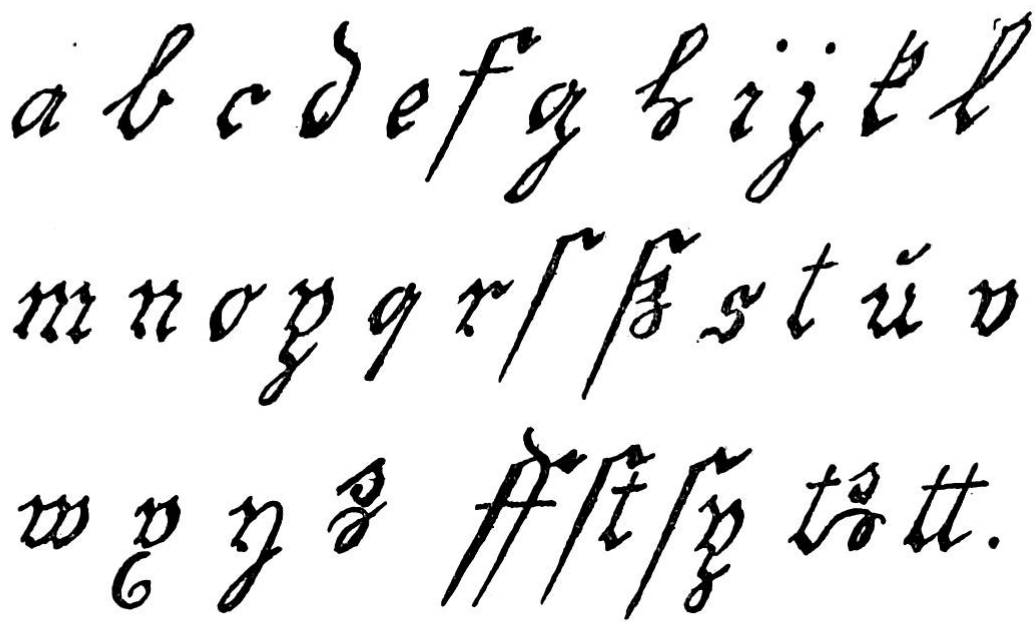 a b c d e f g h i j k l
m n o p q r ſ ß s t ŭ v
w x y z ff ſt ſp tz tt.